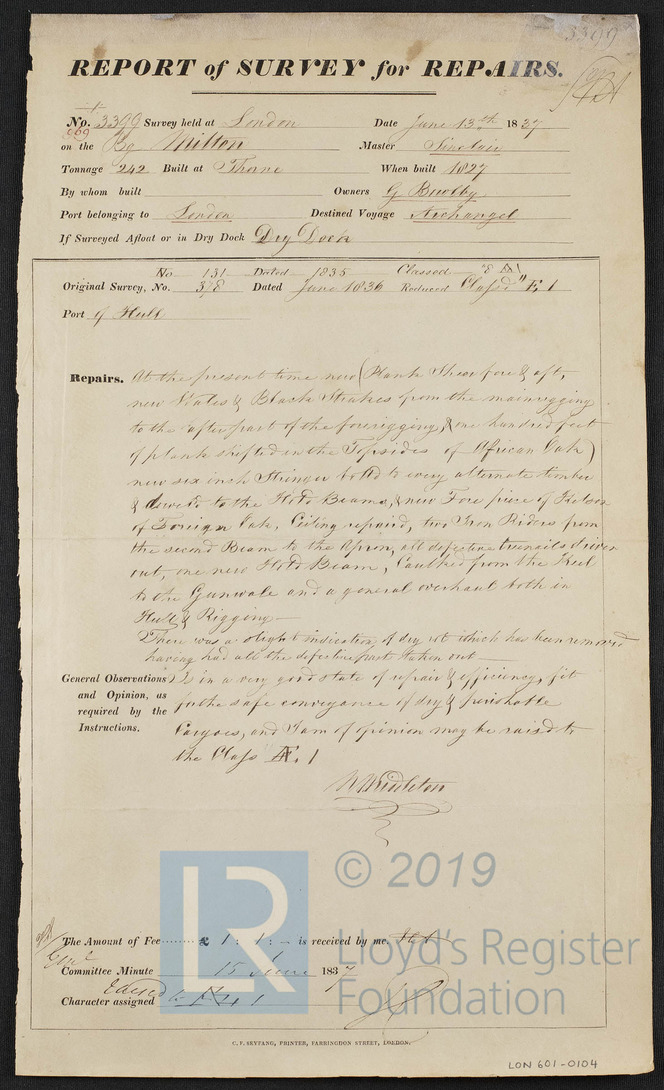 3399
REPORT of SURVEY for REPAIRS.
No. 3399 Survey held at London Date June 13th 1837
on the Bg Milton Master Sinclair
Tonnage 242 Built at Thorne When built 1827
By whom built Owners G
Port belonging to London Destined Voyage Archangel
If Surveyed Afloat or in Dry Dock Dry Dock
No 131 Dated 1835 Classed Æ 1
Original Survey, No. 378 Dated June 1836 Reduced Class'd "E, 1
Port of Hull
Repairs. At the present time new (Plank Shear fore & aft,
new Wales & Black Strakes from the mainrigging
to the after part of the forerigging, & one hundred feet
of plank shifted in the Topsides of African Oak)
new six inch Stringer bolt'd to every alternate timber
& dowel'd to the Hold Beams, & new Fore piece of Kelson
of Foreign Oak, Ceiling repaired, two Iron Riders from
the second Beam to the Apron, all defective treenails driven
out, one new Hold Beam, Caulked from the Keel
to the Gunwale and a general overhaul both in
Hull & Rigging—
There was a slight indication of dry rot which has been removed
having had all the defective part taken out—
General Observations
and Opinion, as
required by the
Instructions.
Is in a very good state of repair & efficiency, fit
for the safe conveyance of dry & perishable
Cargoes, and I am of opinion may be raised to
the Class Æ. 1
N Middleton
The Amount of Fee £ 1 : 1 : — is received by me.
Committee Minute 15 June 1837
Character assigned 1
© 2019
LR
Lloyd's Register
Foundation
C. F. SEYFANG, PRINTER, FARRINGDON STREET, LONDON.
LON 601-0104